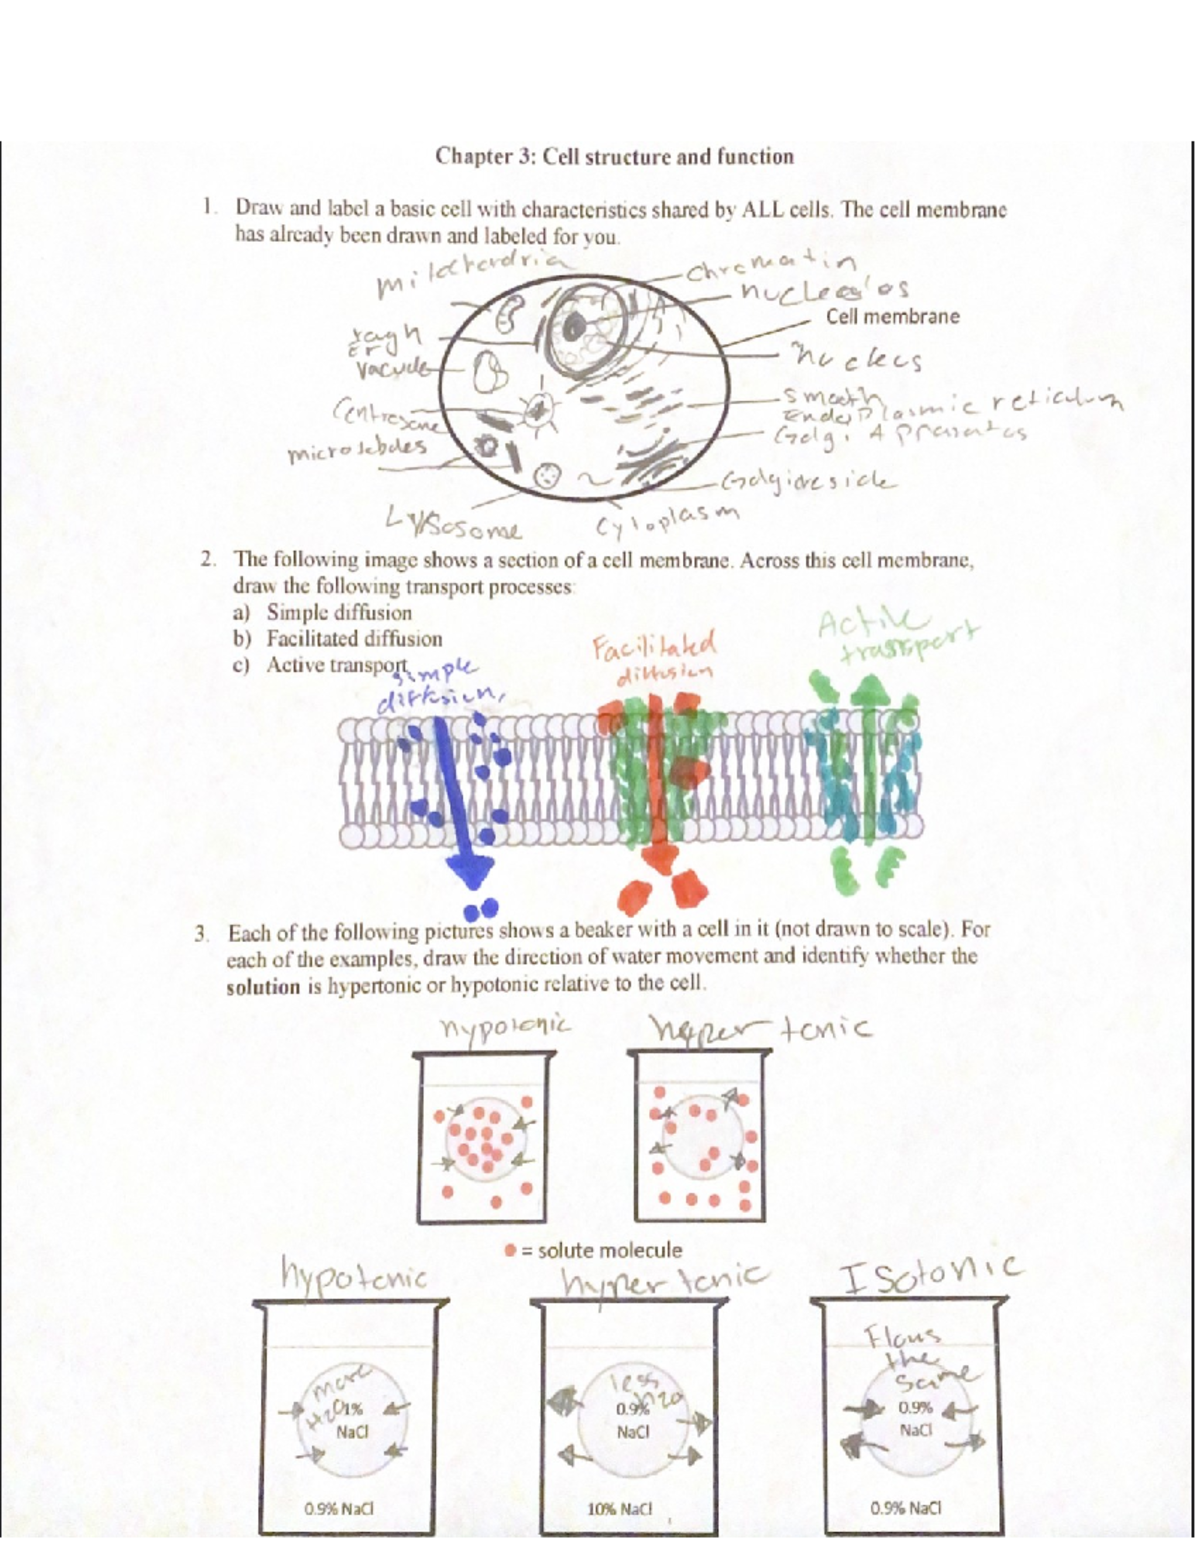 Chapter 3: Cell structure and function
1. Draw and label a basic cell with characteristics shared by ALL cells. The cell membrane
has already been drawn and labeled for you.
chromatin
Cell membrane
rough
Er
Smooth
microtebules
Lysosome
cytoplasm
2. The following image shows a section of a cell membrane. Across this cell membrane,
draw the following transport processes:
a) Simple diffusion
b) Facilitated diffusion
c) Active transport
simple
diffusion
Facilitated
diffusion
Active
transport
3. Each of the following pictures shows a beaker with a cell in it (not drawn to scale). For
each of the examples, draw the direction of water movement and identify whether the
solution is hypertonic or hypotonic relative to the cell.
hypotonic hypertonic
= solute molecule
hypotonic hypertonic Isotonic
more
H2O
NaCl
0.9% NaCl
less
H2O
0.9%
NaCl
10% NaCl
Flows
the
same
0.9%
NaCl
0.9% NaCl